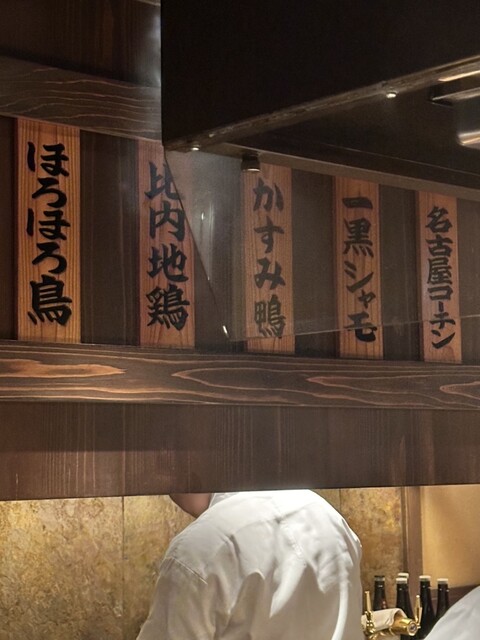 ほろほろ鳥
比内地鶏
かすみ鴨
一黒シャモ
名古屋コーチン